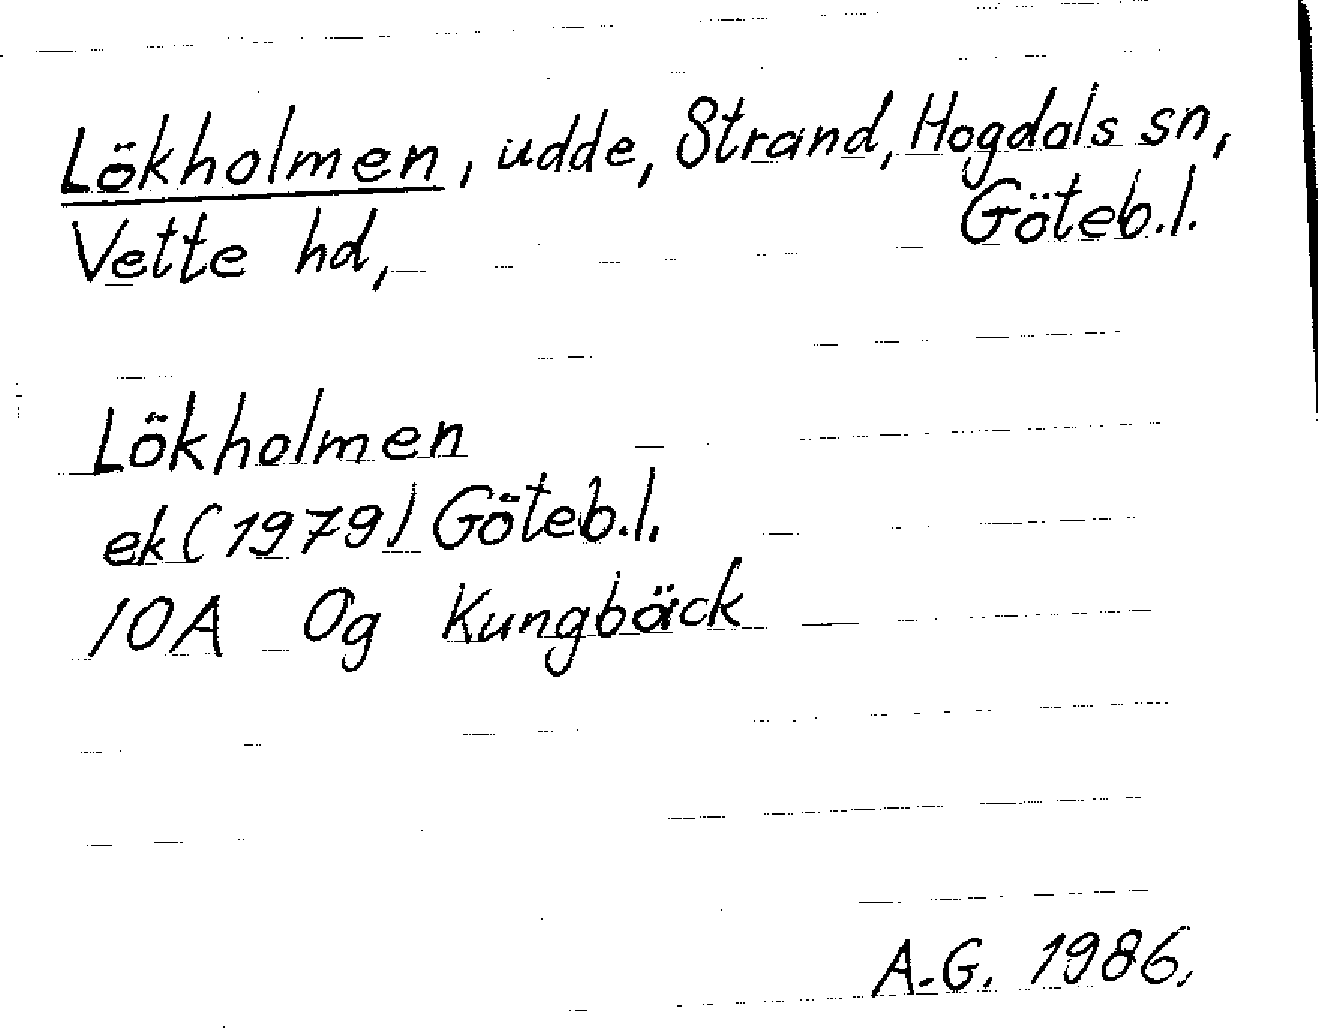 Lökholmen, udde, Strand, Hogdals sn,
Göteb.l.
Vette hd,
Lökholmen
ek (1979) Göteb.l.
10A 0g Kungbäck
A.G. 1986.